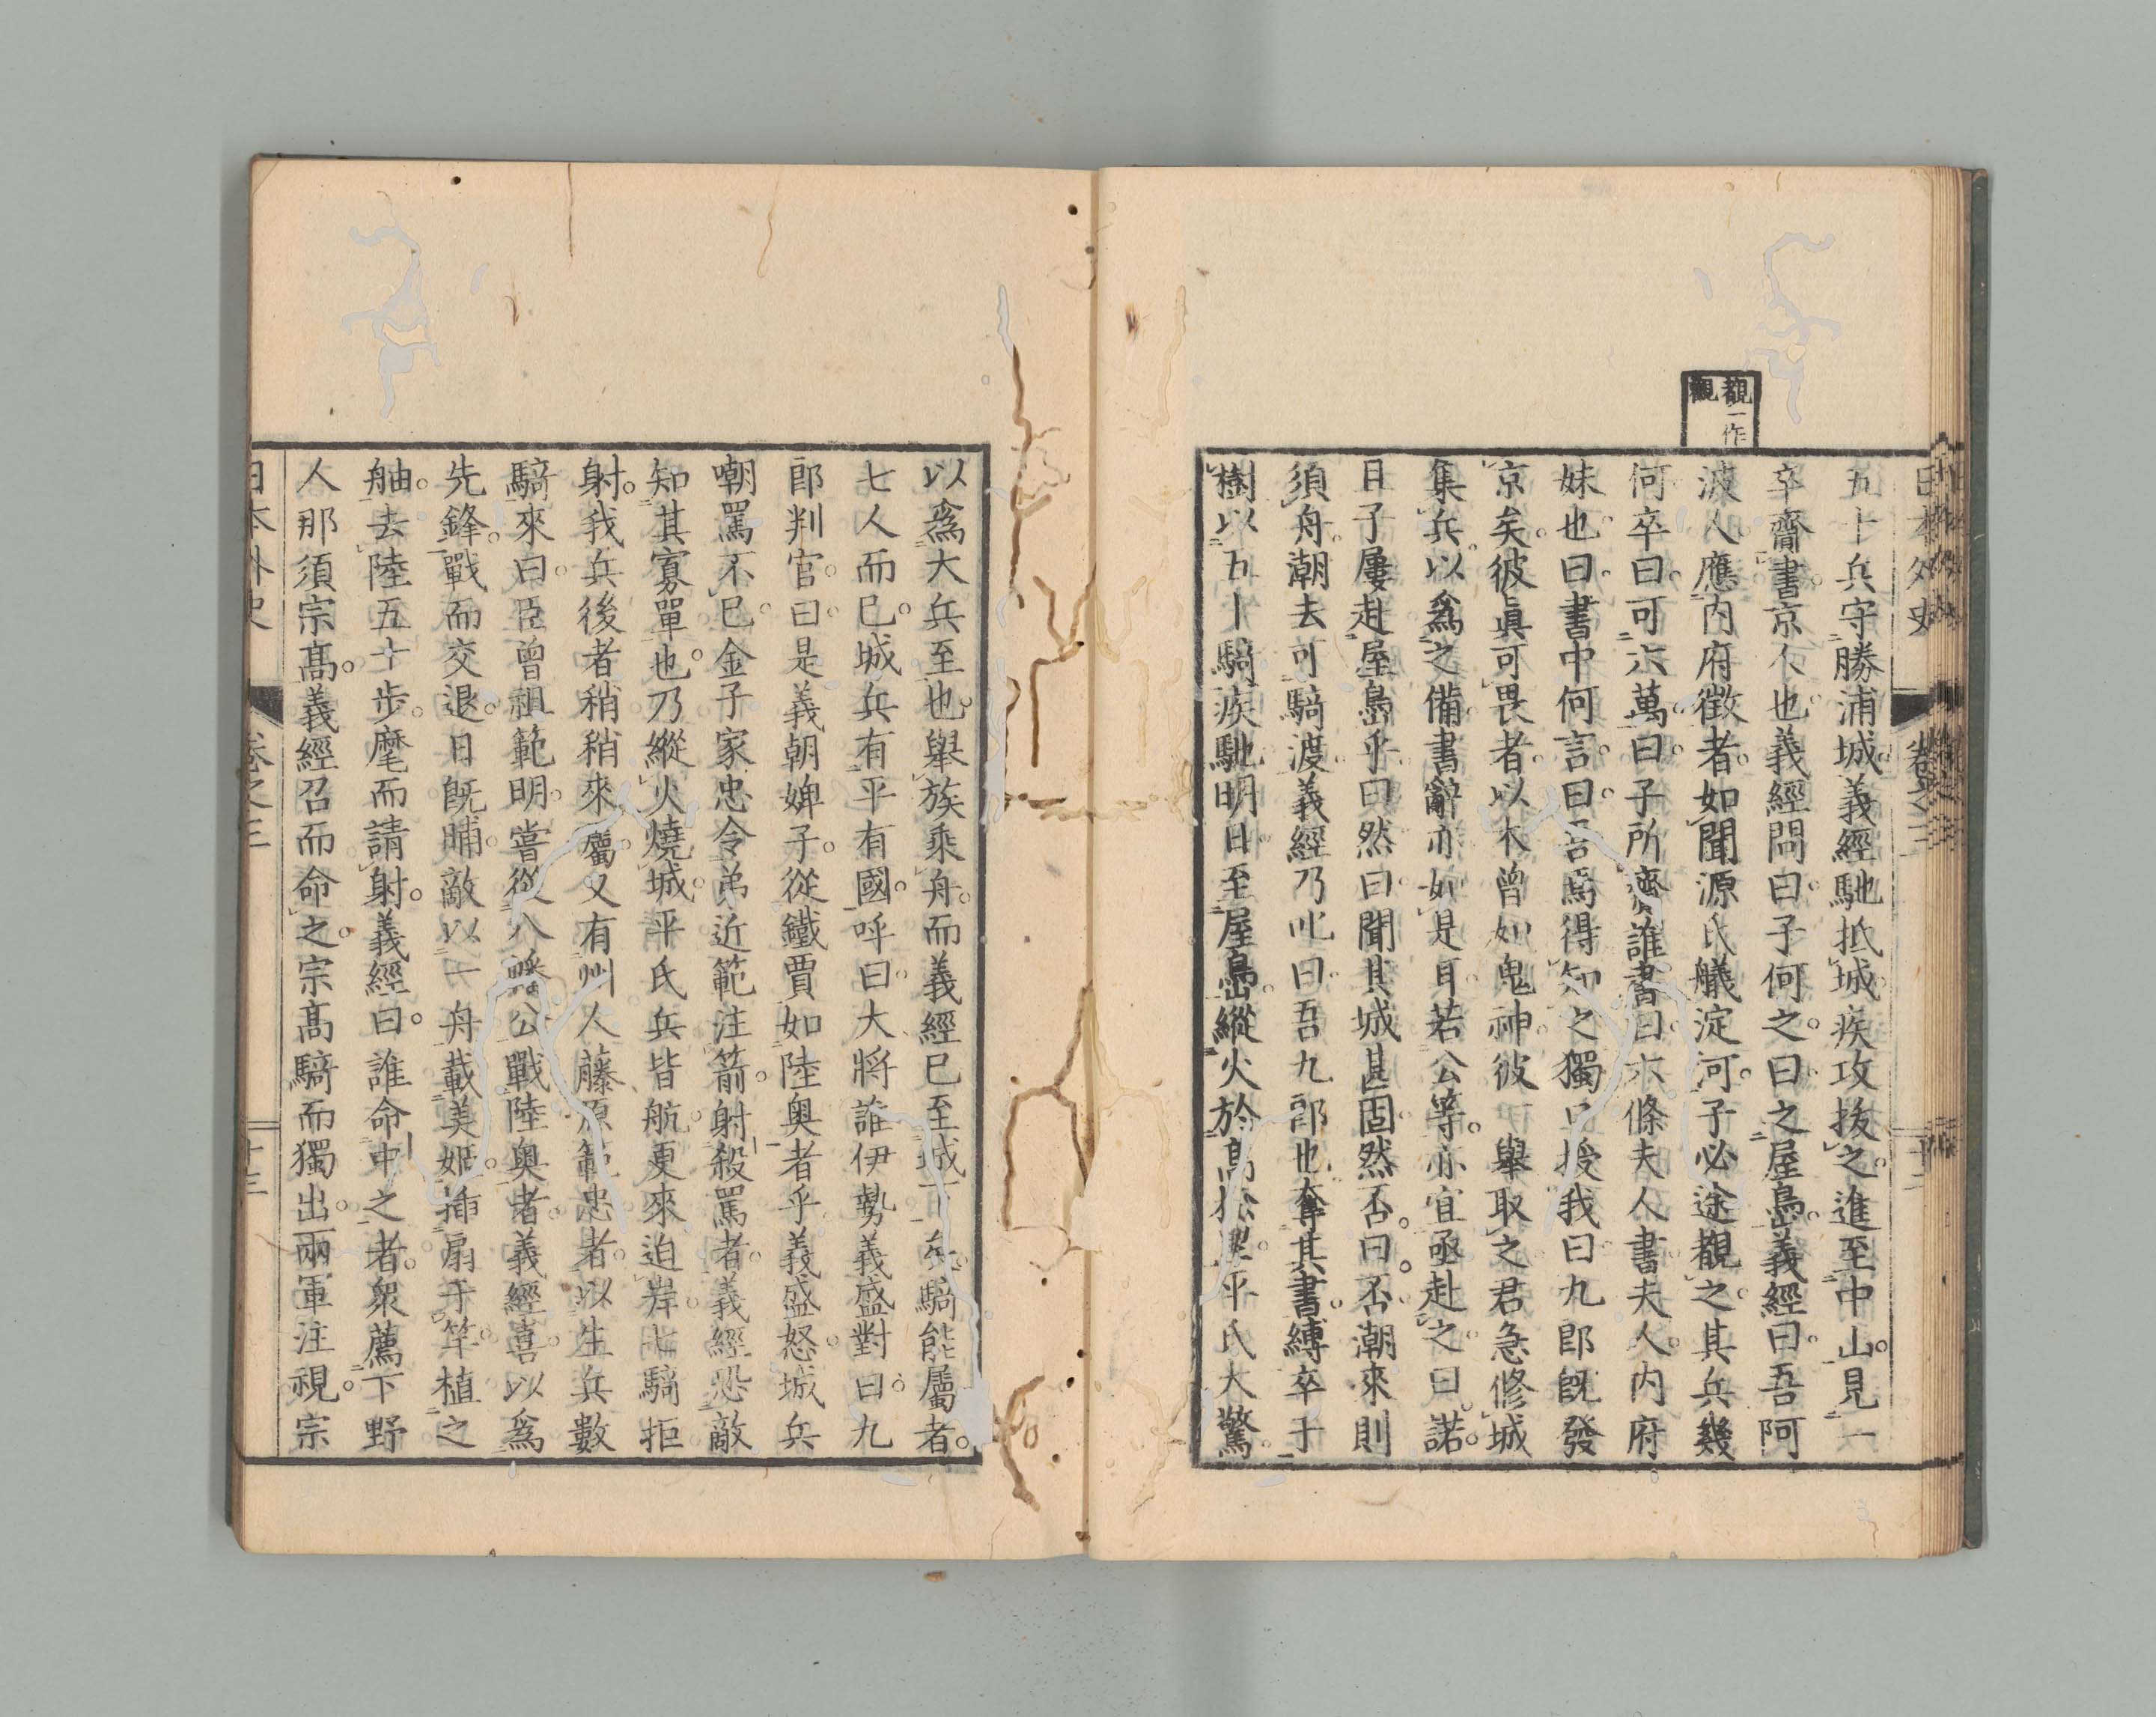 日本外史 卷之三
覩一作
觀
五十兵守勝浦城。義經馳抵城。疾攻拔之。進至中山。見一
卒齎書。京人也。義經問曰。子何之。曰。之屋島。義經曰。吾阿
波人應內府徵者。如聞源氏艤淀河。子必途覩之。其兵幾
何。卒曰。可六萬。曰。子所齎誰書。曰。六條夫人書。夫人。內府
妹也。曰。書中何言。曰。吾焉得知之。獨口授我曰。九郎既發
京矣。彼眞可畏者。以木曾如鬼神。彼一舉取之。君急修城
集兵。以爲之備。書辭亦如是耳。若公等。亦宜亟赴之。曰。諾。
曰。子屢赴屋島乎。曰。然。曰。聞其城甚固。然否。曰。否。潮來則
須舟。潮去可騎渡。義經乃叱曰。吾九郎也。奪其書。縛卒于
樹。以五十騎疾馳。明日。至屋島。縱火於高松里。平氏大驚。
以爲大兵至也。舉族乘舟。而義經已至城下矣。騎能屬者。
七人而已。城兵有平有國。呼曰。大將誰。伊勢義盛對曰。九
郎判官。曰。是義朝婢子。從鐵賈如陸奧者乎。義盛怒。城兵
嘲罵不已。金子家忠令弟近範注箭。射殺罵者。義經恐敵
知其寡單也。乃縱火燒城。平氏兵皆航。更來迫岸。七騎拒
射。我兵後者稍稍來屬。又有州人藤原範忠者。以生兵數
騎來曰。臣曾祖範明。嘗從八幡公戰陸奧者。義經喜。以爲
先鋒。戰而交退。日既晡。敵以一舟載美姬。插扇于竿。植之
舳。去陸五十步。麾而請射。義經曰。誰命中之者。衆薦下野
人那須宗高。義經召而命之。宗高騎而獨出。兩軍注視。宗
日本外史 卷之三 十三